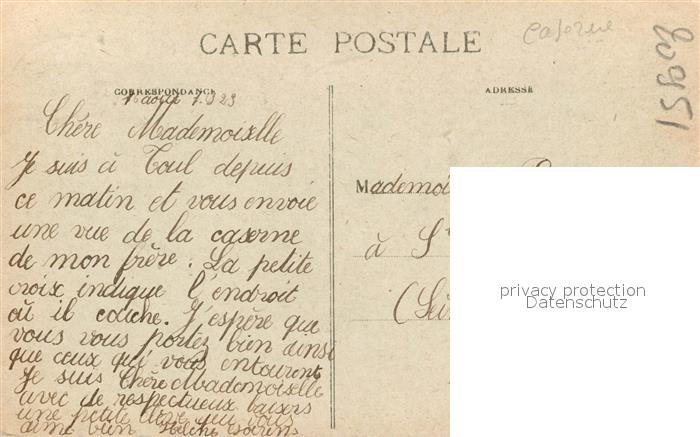 caserne
CARTE POSTALE
20951
CORRESPONDANCE
ADRESSE
16 août 1923
Chère Mademoiselle
Je suis à Toul depuis
ce matin et vous envoie
une vue de la caserne
de mon frère. La petite
croix indique l'endroit
où il couche. J'espère que
vous vous portez bien ainsi
que ceux qui vous entourent
Je suis Chère Mademoiselle
avec de respectueux baisers
une petite élève qui vous
aime bien
Mademoi
à S
(Sei
privacy protection
Datenschutz